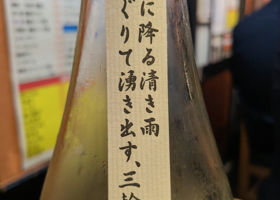 に降る清き雨
ぐりて湧き出す、三輪